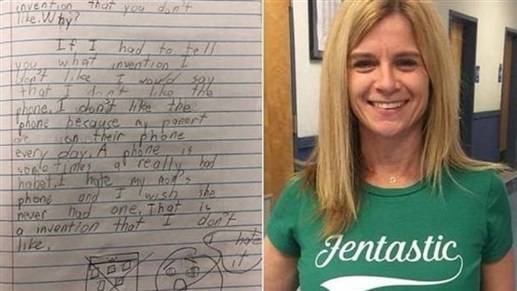 invention that you don't
like. Why?
If I had to tell
you what invention I
don't like I would say
that I don't like the
phone. I don't like the
phone because my panert
are on their phone
every day. A phone is
sometimes a really bad
habet. I hate my mom's
phone and I wish she
never had one. That is
a invention that I don't
like.
I hate
it
Jentastic